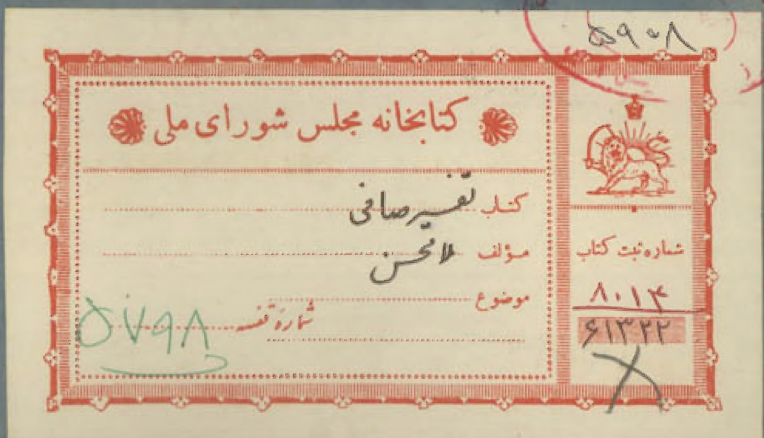 ۵۹۰۸
کتابخانه مجلس شورای ملی
کتاب تفسیر صافی
مؤلف ملا محسن
موضوع
شمارهٔ قفسه ۵۷۹۸
شماره ثبت کتاب
۸۰۱۴
۶۱۳۲۲